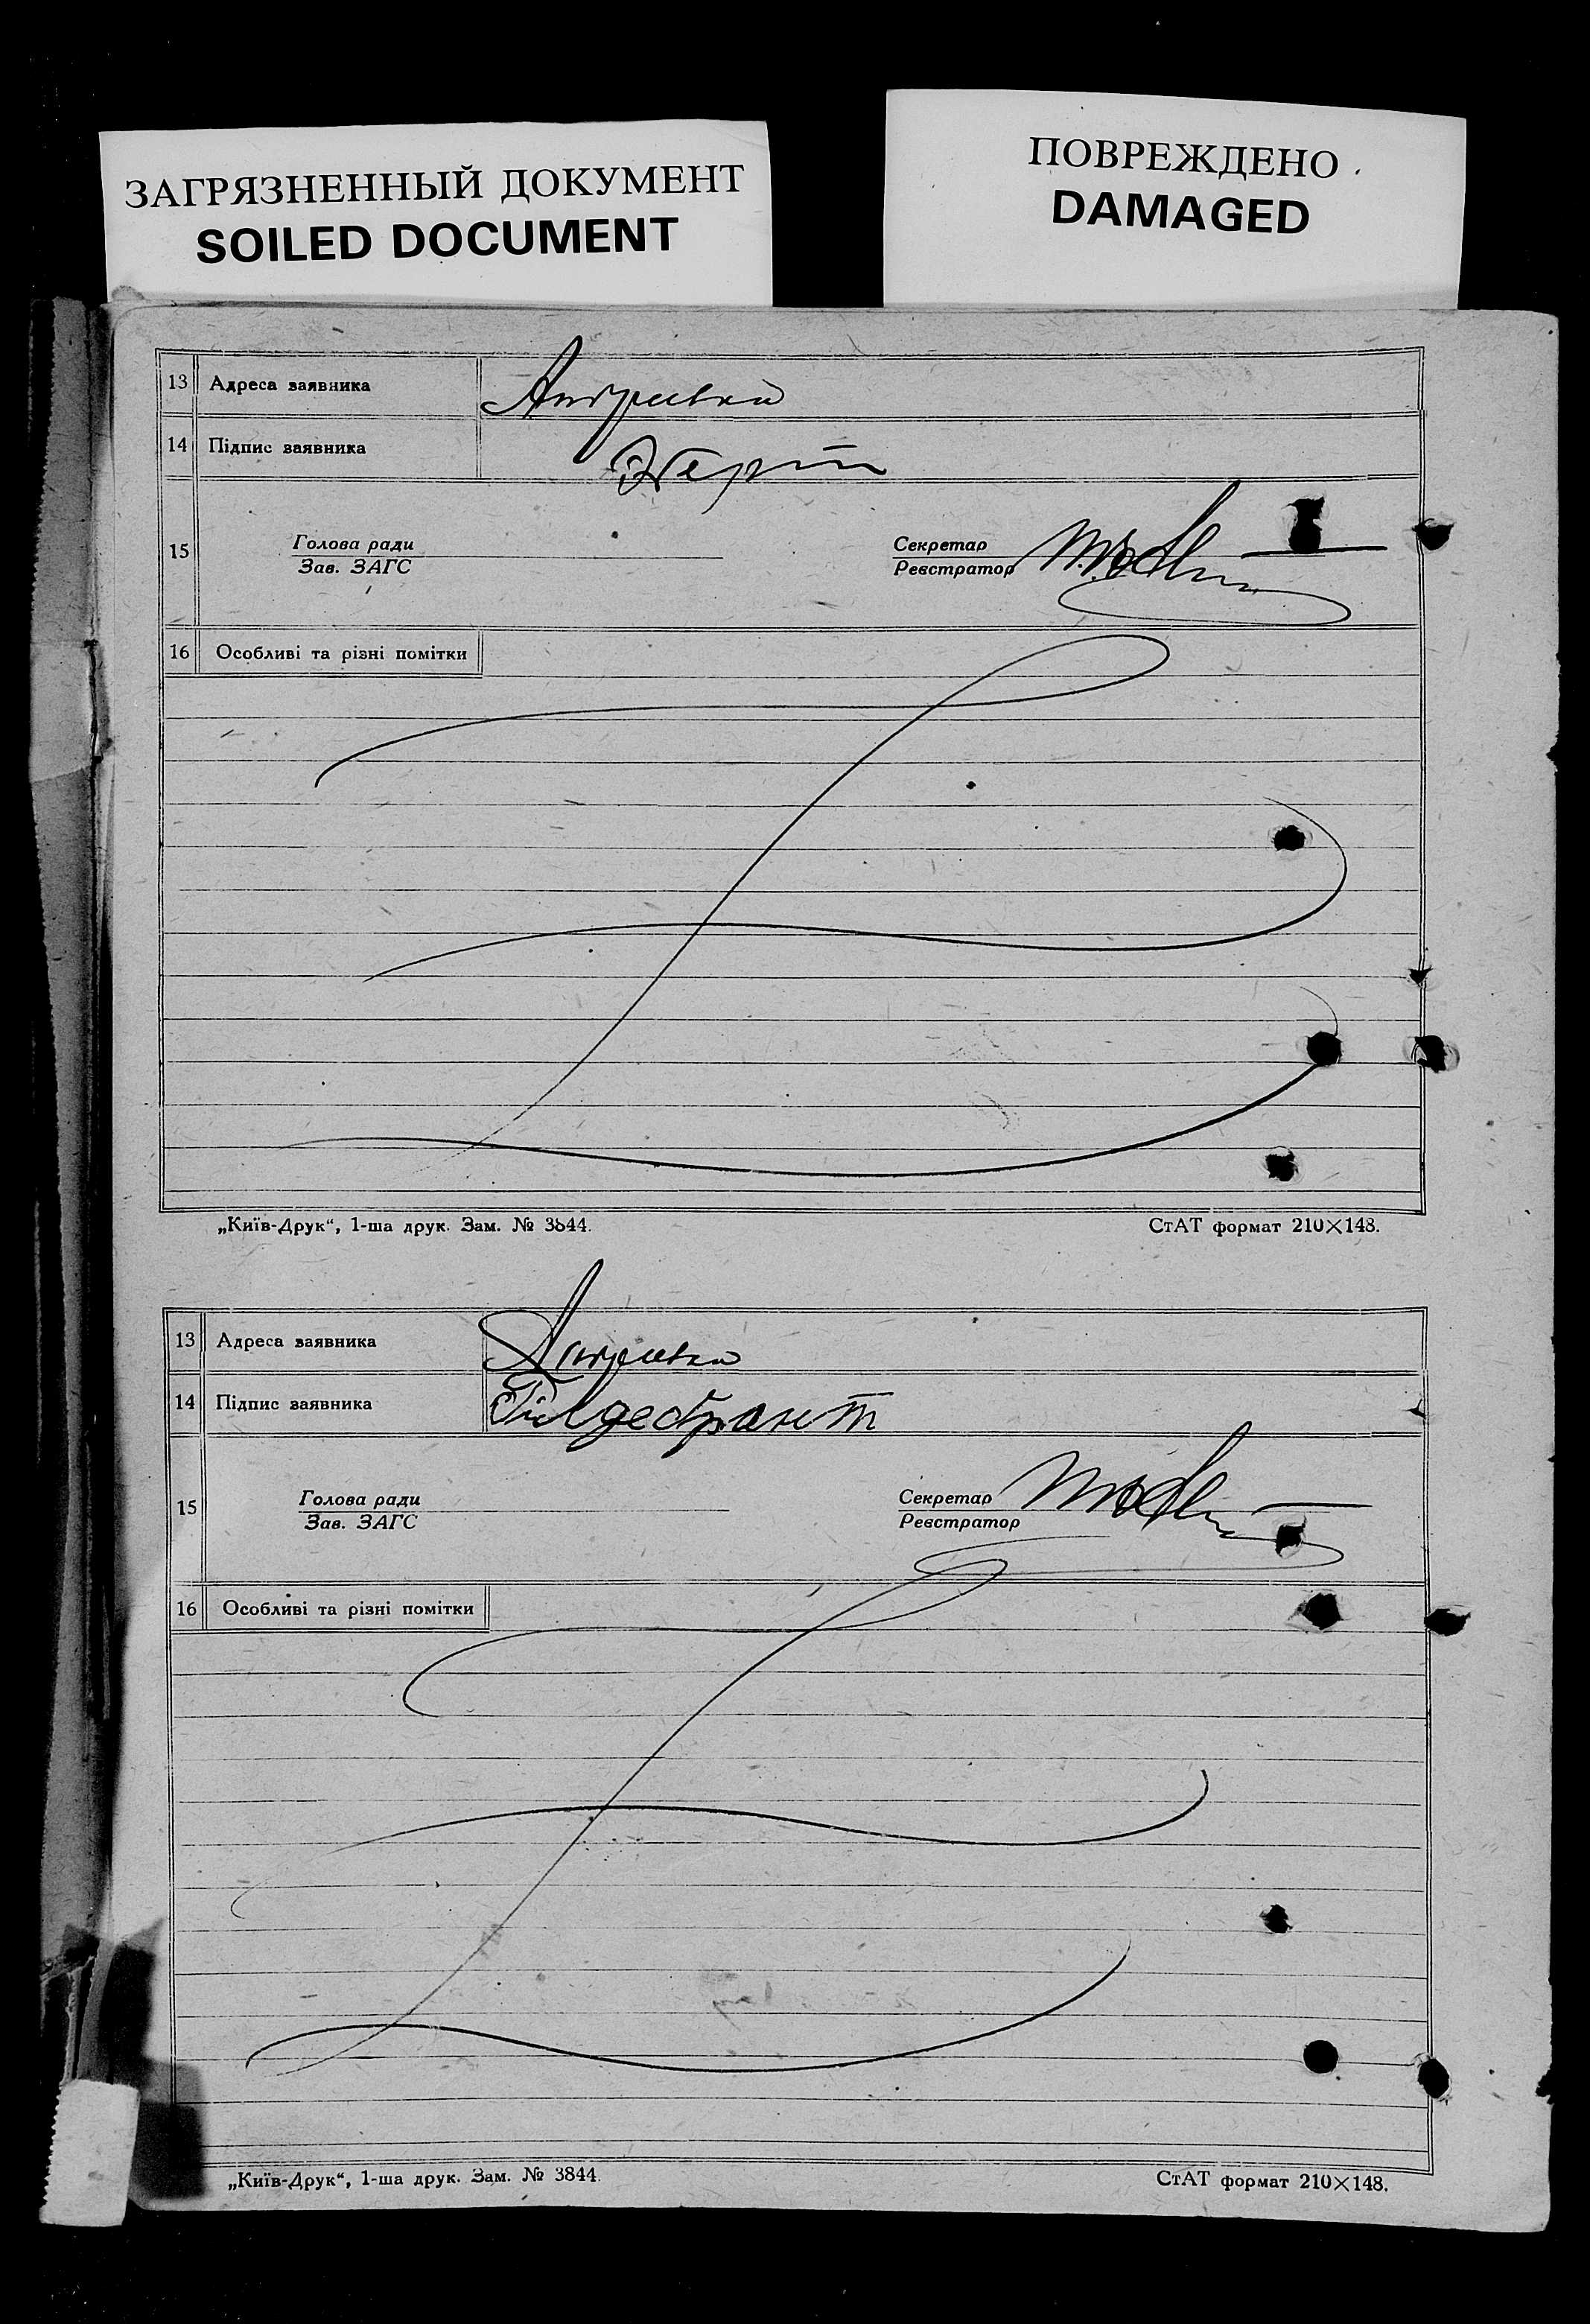 ЗАГРЯЗНЕННЫЙ ДОКУМЕНТ
SOILED DOCUMENT
ПОВРЕЖДЕНО
DAMAGED
13 Адреса заявника
14 Підпис заявника
15 Голова ради
Зав. ЗАГС
Секретар
Реєстратор
16 Особливі та різні помітки
„Київ-Друк“, 1-ша друк. Зам. № 3844. СтАТ формат 210×148.
13 Адреса заявника
14 Підпис заявника Гильдебрант
15 Голова ради
Зав. ЗАГС
Секретар
Реєстратор
16 Особливі та різні помітки
„Київ-Друк“, 1-ша друк. Зам. № 3844. СтАТ формат 210×148.